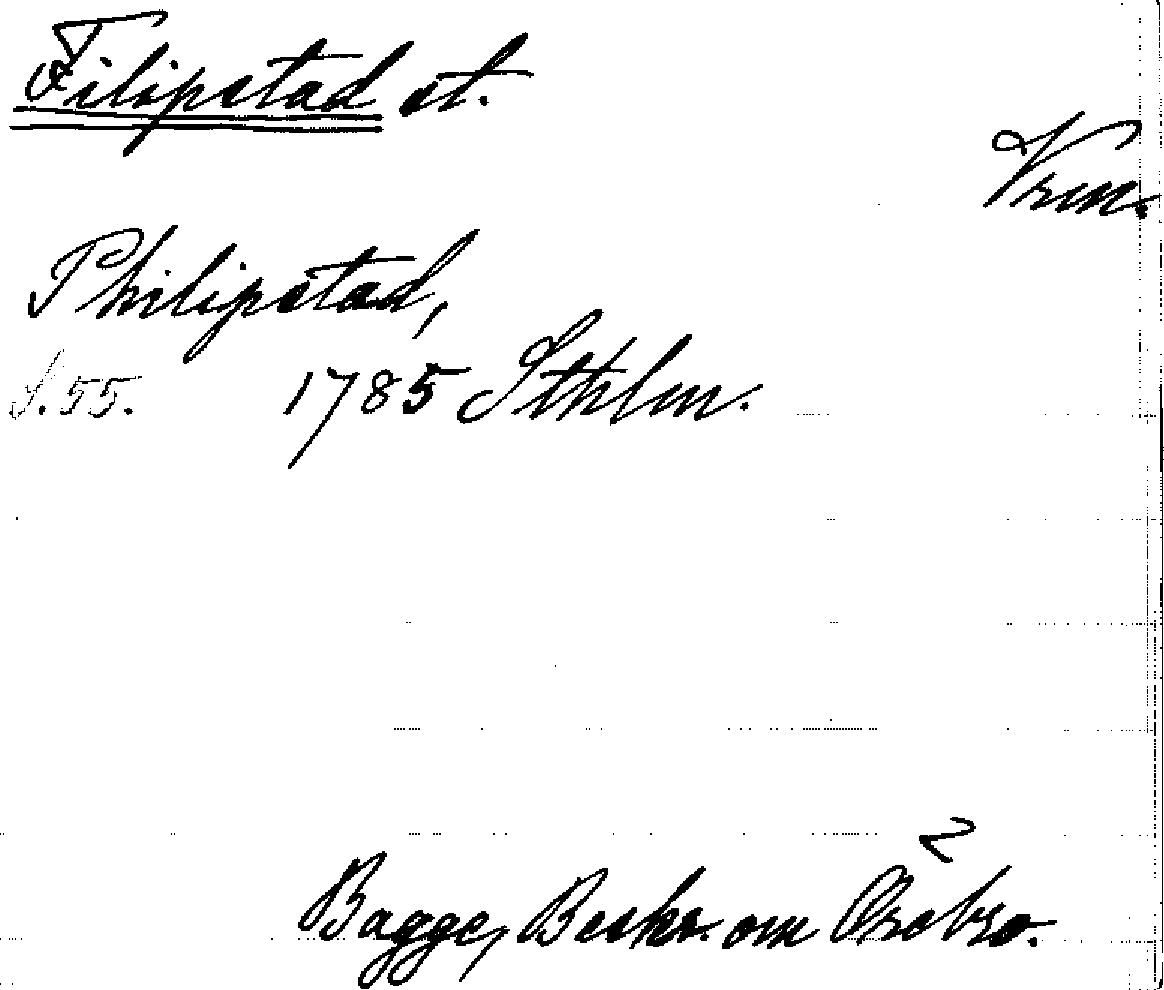 Filipstad st.
Vrm.
Philipstad,
S. 55. 1785 Sthlm.
2
Bagge, Beskr. om Örebro.